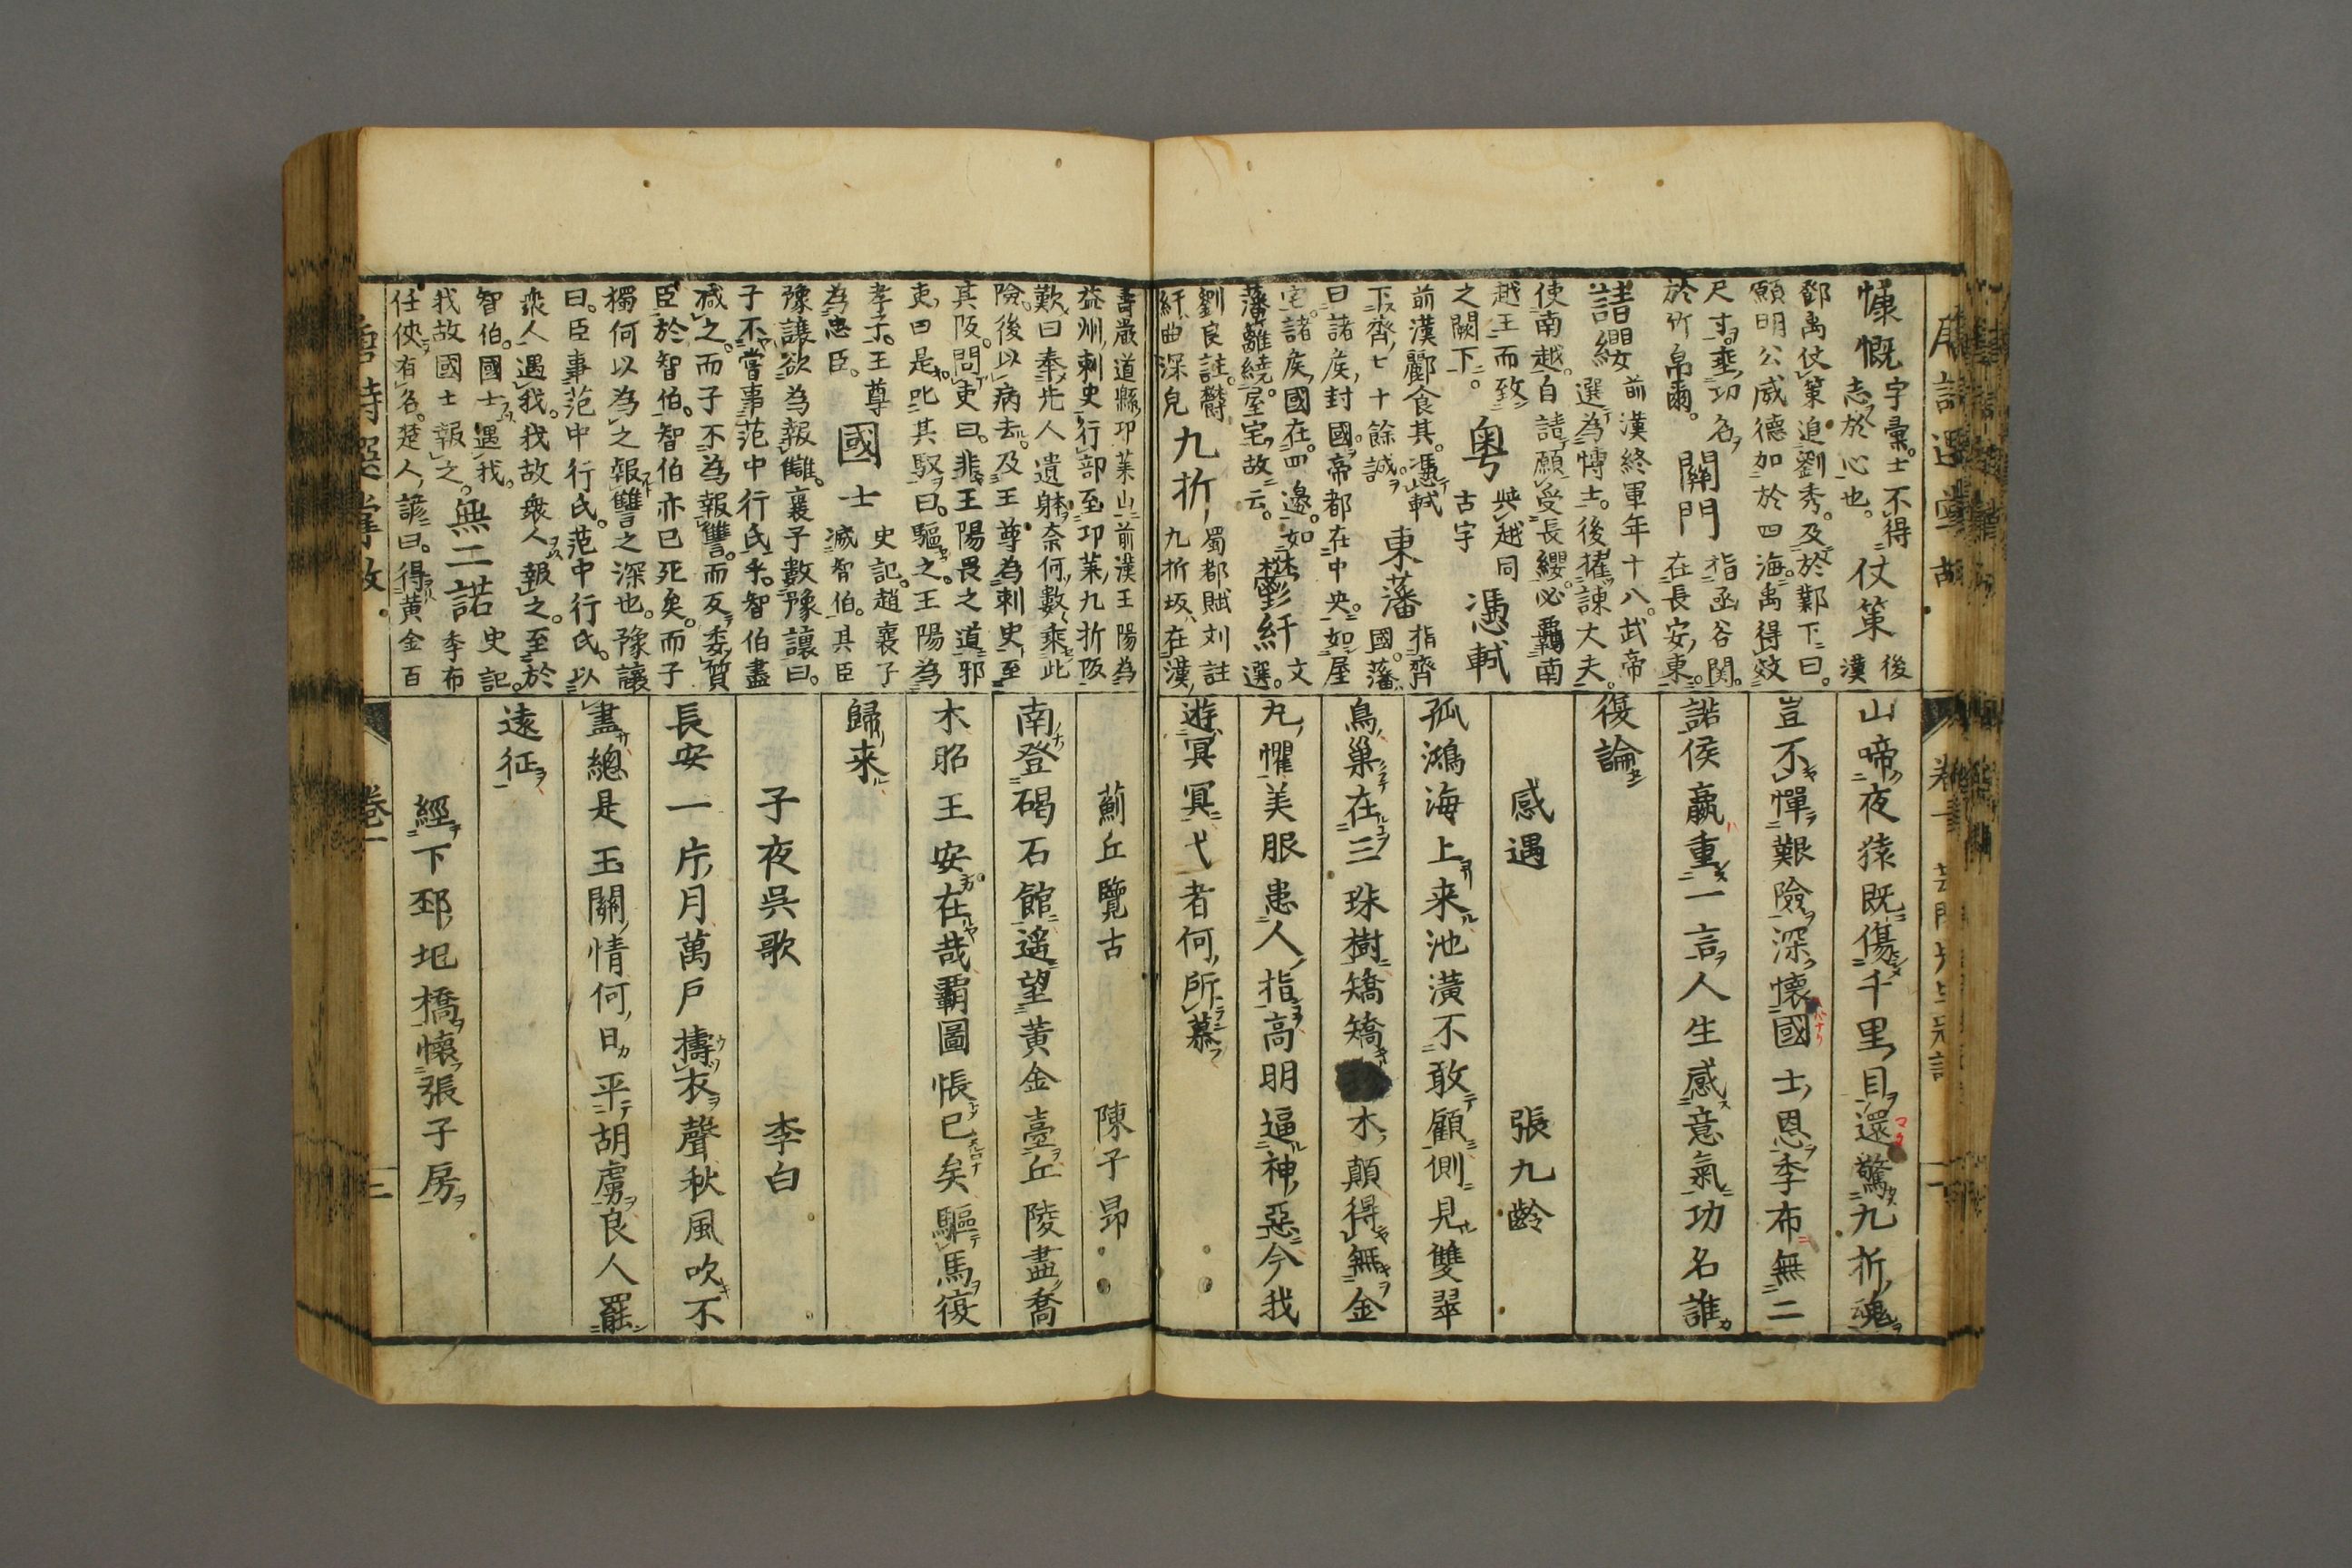 慷慨 字彙士不得
志於心也。 仗策 後漢
鄧禹仗策追劉秀。及於鄴下曰。
願明公威德加於四海禹得效
尺寸。垂功名
於竹帛爾。 關門 指函谷関。
在長安東。
請纓 前漢終軍年十八。武帝
選為博士。後擢諫大夫。
使南越。自請願受長纓。必羈南
越王而致
之闕下。 粤 與越同
古字 憑軾
前漢酈食其。憑軾
下齊七十餘誠。 東藩 指齊
國。藩
曰諸侯封國。帝都在中央。如屋
宅。諸侯國在四邊。如
藩籬繞屋宅故云。 鬱紆 文
選。
劉良註。欝
紆曲深皃 九折 蜀都賦刘註
九折坂在漢
山啼夜猿既傷千里目還驚九折魂
豈不憚艱險深懷國士恩季布無二
諾侯嬴重一言人生感意氣功名誰
復論
感遇 張九齡
孤鴻海上来池潢不敢顧側見雙翠
鳥巢在三珠樹矯矯木顛得無金
丸懼美服患人指高明逼神惡今我
遊冥冥弋者何所慕
壽嚴道縣邛莱山前漢王陽為
益州刺史行部至邛莱九折阪
歎曰奉先人遺躰奈何數乘此
險。後以病去。及王尊為刺史至
其阪。問吏曰。非王陽畏之道邪
吏曰是叱其馭曰。驅之。王陽為
孝子。王尊
為忠臣。 國士 史記。趙襄子
滅智伯。其臣
豫讓欲為報讎。襄子數豫讓曰。
子不嘗事范中行氏乎。智伯盡
滅之。而子不為報讐。而反委質
臣於智伯。智伯亦已死矣。而子
獨何以為之報讐之深也。豫讓
曰。臣事范中行氏。范中行氏。以
衆人遇我。我故衆人報之。至於
智伯。國士遇我。
我故國士報之。 無二諾 史記。
季布
任俠有名。楚人諺曰。得黄金百
薊丘覽古 陳子昂
南登碣石館遥望黄金臺丘陵盡喬
木昭王安在哉覇圖悵已矣驅馬復
歸来
子夜吳歌 李白
長安一片月萬戸擣衣聲秋風吹不
盡總是玉關情何日平胡虜良人罷
遠征
經下邳圯橋懷張子房
卷一
三